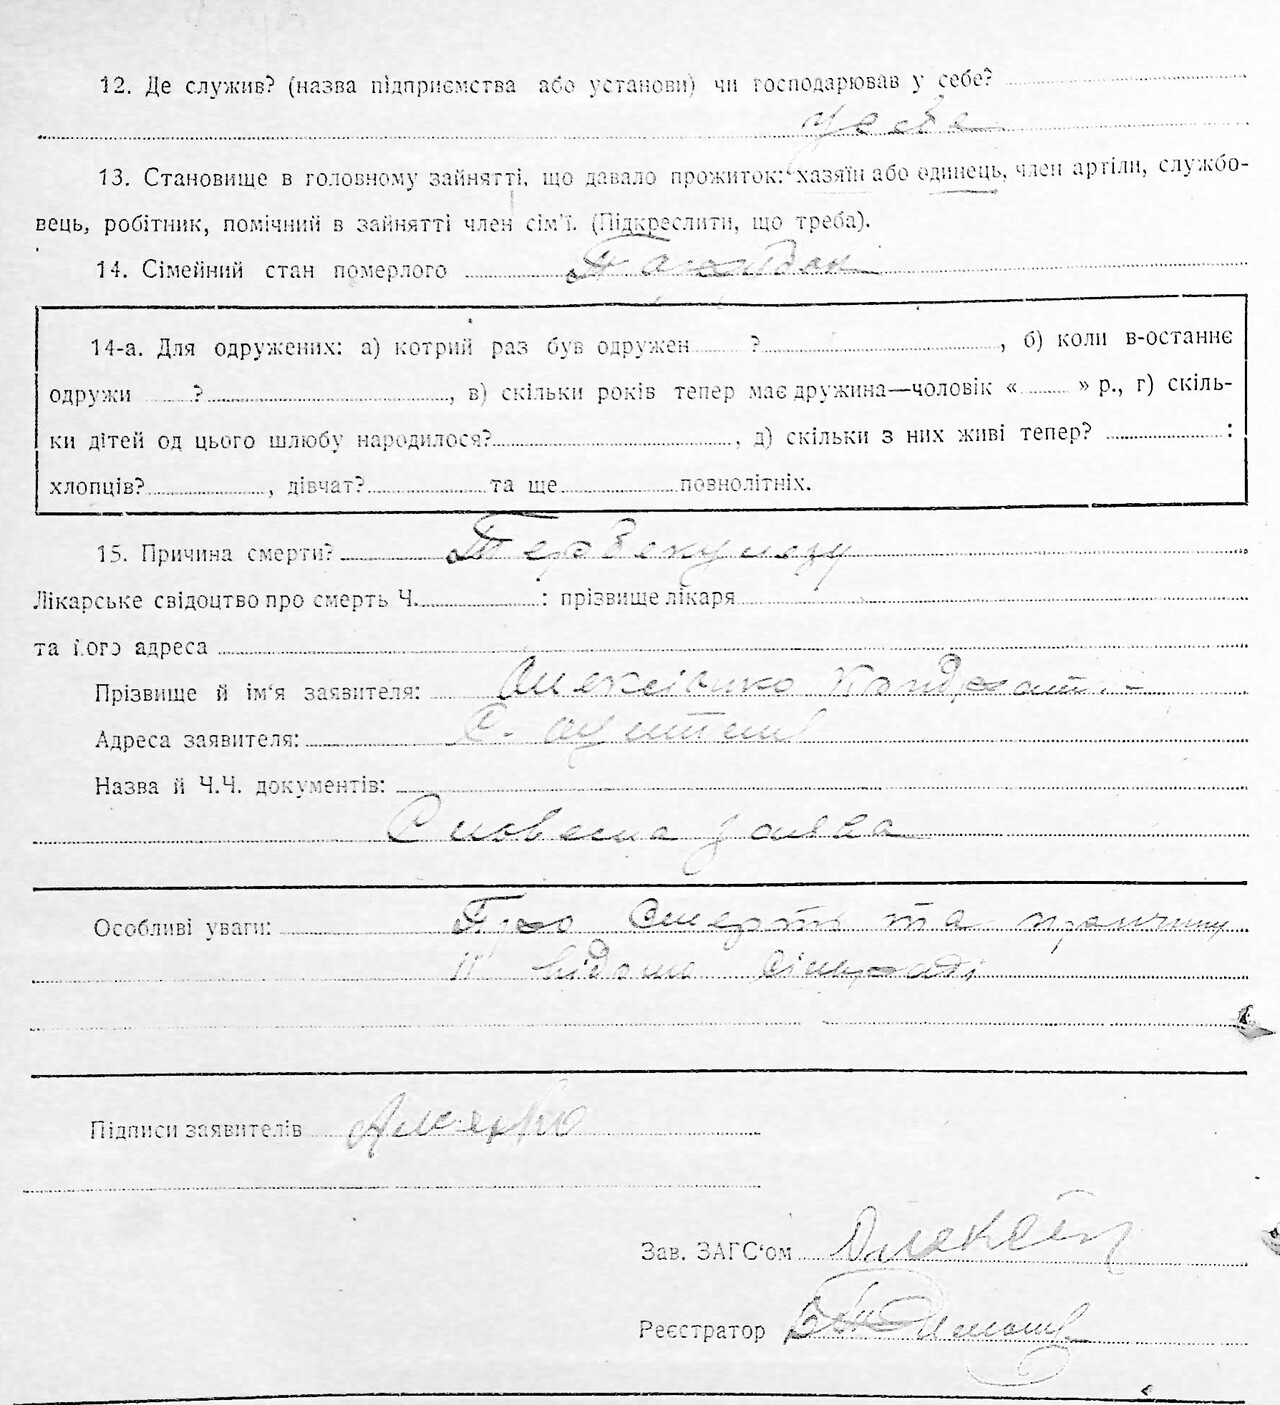 12. Де служив? (назва підприємства або установи) чи господарював у себе?
у себе
13. Становище в головному зайнятті, що давало прожиток: хазяїн або одинець, член артіли, службо-
вець, робітник, помічний в зайнятті член сім'ї. (Підкреслити, що треба).
14. Сімейний стан померлого
14-а. Для одружених: а) котрий раз був одружен ?, б) коли в-останнє
одружи ?, в) скільки років тепер має дружина—чоловік « » р., г) скіль-
ки дітей од цього шлюбу народилося?, д) скільки з них живі тепер? :
хлопців?, дівчат? та ще повнолітніх.
15. Причина смерти?
Лікарське свідоцтво про смерть Ч. : прізвище лікаря
та його адреса
Прізвище й ім'я заявителя: Олексієнко Кондрат
Адреса заявителя: С.
Назва й Ч.Ч. документів:
Словесна заява
Особливі уваги: Про смерть та причину
її відомо сільраді
Підписи заявителів
Зав. ЗАГС'ом
Реєстратор